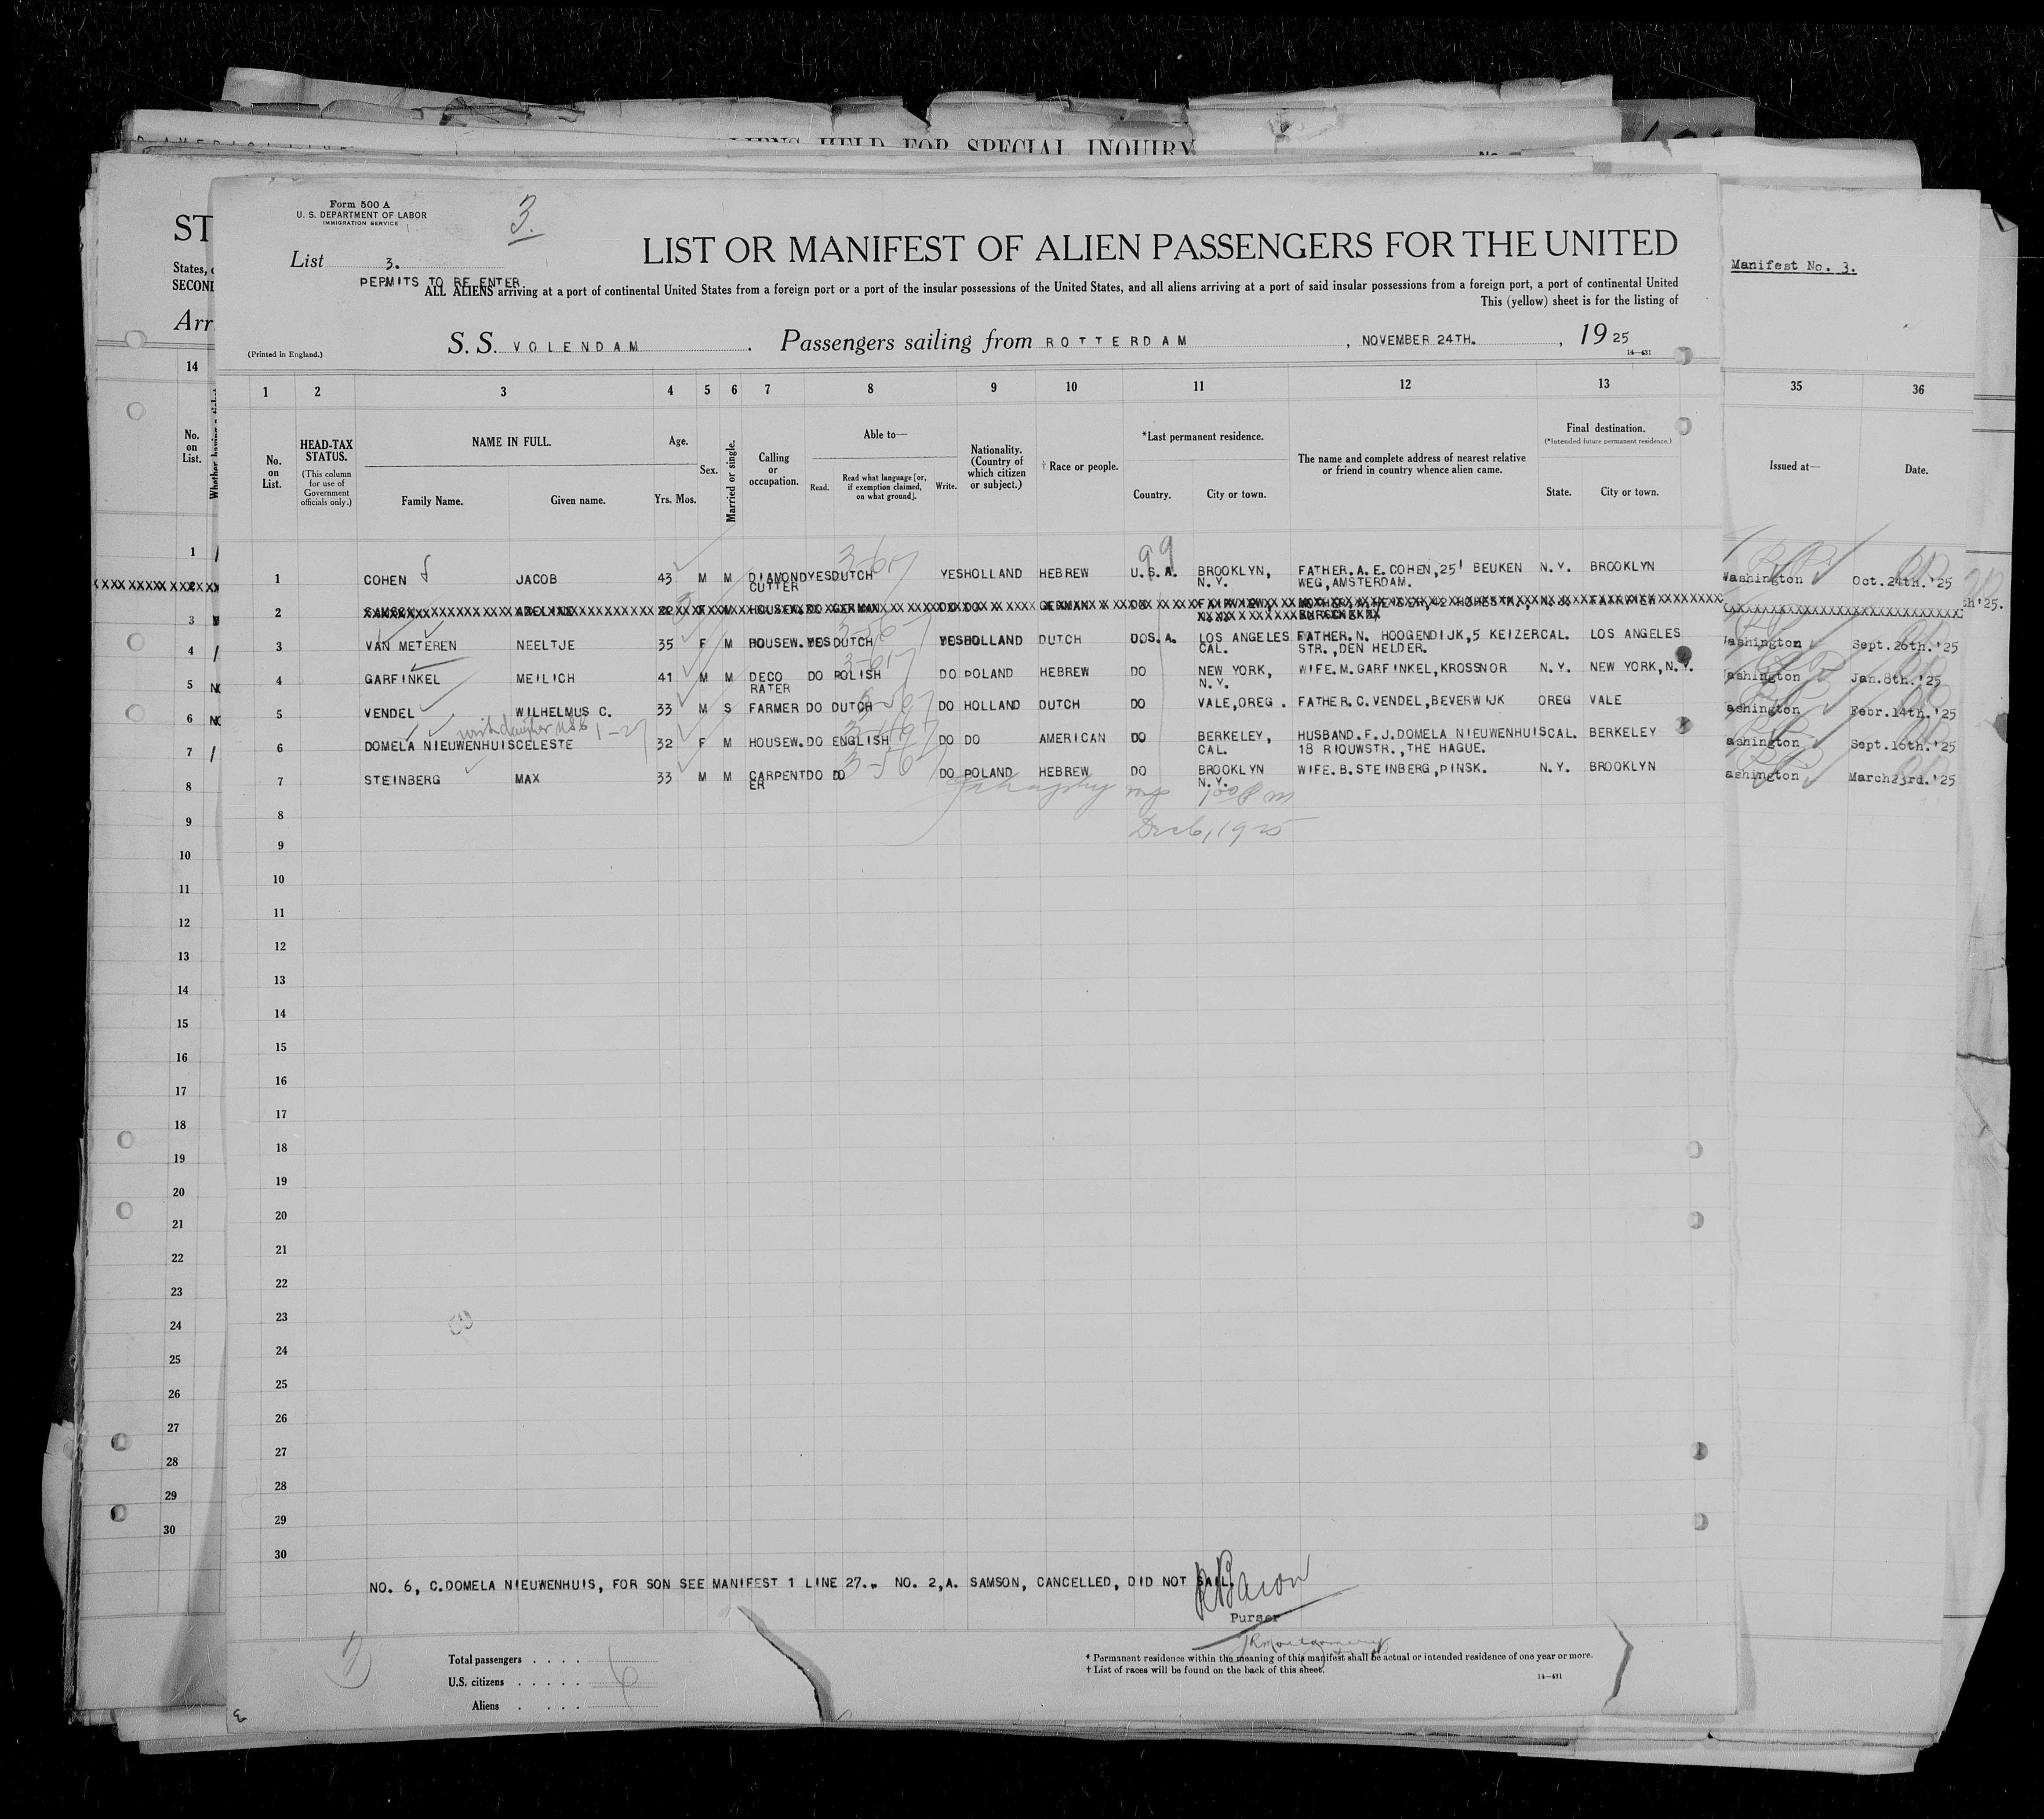 LIENS HELD FOR SPECIAL INQUIRY
Form 500 A
U. S. DEPARTMENT OF LABOR
IMMIGRATION SERVICE
3.
List 3.
LIST OR MANIFEST OF ALIEN PASSENGERS FOR THE UNITED
Manifest No. 3.
PERMITS TO RE ENTER
ALL ALIENS arriving at a port of continental United States from a foreign port or a port of the insular possessions of the United States, and all aliens arriving at a port of said insular possessions from a foreign port, a port of continental United
This (yellow) sheet is for the listing of
ST
States,
SECOND
Arr
(Printed in England.)
S. S. VOLENDAM . Passengers sailing from ROTTERDAM , NOVEMBER 24TH. , 19 25
14—431
14 1 2 3 4 5 6 7 8 9 10 11 12 13 35 36
No. on List.
No. on List.
HEAD-TAX STATUS. (This column for use of Government officials only.)
NAME IN FULL.
Family Name. Given name.
Age. Yrs. Mos.
Sex.
Married or single.
Calling or occupation.
Able to—
Read. Read what language [or, if exemption claimed, on what ground]. Write.
Nationality. (Country of which citizen or subject.)
† Race or people.
*Last permanent residence.
Country. City or town.
The name and complete address of nearest relative or friend in country whence alien came.
Final destination.
(*Intended future permanent residence.)
State. City or town.
Issued at— Date.
99
1 COHEN JACOB 43 M M DIAMOND CUTTER YES DUTCH YES HOLLAND HEBREW U.S.A. BROOKLYN, N.Y. FATHER. A. E. COHEN, 25' BEUKEN WEG, AMSTERDAM. N.Y. BROOKLYN Washington Oct. 24th. '25
2 SAMSON ADELINE 22 F M HOUSEW. DO GERMAN DO DO GERMAN DO FAIRVIEW,
3 VAN METEREN NEELTJE 35 F M HOUSEW. YES DUTCH YES HOLLAND DUTCH U.S.A. LOS ANGELES CAL. FATHER. N. HOOGENDIJK, 5 KEIZER STR., DEN HELDER. CAL. LOS ANGELES ashington Sept. 26th. '25
4 GARFINKEL MEILICH 41 M M DECO RATER DO POLISH DO POLAND HEBREW DO NEW YORK, N.Y. WIFE. M. GARFINKEL, KROSSNOR N.Y. NEW YORK, N.Y. ashington Jan. 8th. '25
5 VENDEL WILHELMUS C. 33 M S FARMER DO DUTCH DO HOLLAND DUTCH DO VALE, OREG. FATHER. C. VENDEL, BEVERWIJK OREG VALE ashington Febr. 14th. '25
with daughter
6 DOMELA NIEUWENHUIS CELESTE 32 F M HOUSEW. DO ENGLISH DO DO AMERICAN DO BERKELEY, CAL. HUSBAND. F. J. DOMELA NIEUWENHUIS 18 RIOUWSTR., THE HAGUE. CAL. BERKELEY ashington Sept. 16th. '25
7 STEINBERG MAX 33 M M CARPENT ER DO DO DO POLAND HEBREW DO BROOKLYN N.Y. WIFE. B. STEINBERG, PINSK. N.Y. BROOKLYN ashington March 23rd. '25
Dec 6, 1925
8
9
10
11
12
13
14
15
16
17
18
19
20
21
22
23
24
25
26
27
28
29
30
NO. 6, C. DOMELA NIEUWENHUIS, FOR SON SEE MANIFEST 1 LINE 27.. NO. 2, A. SAMSON, CANCELLED, DID NOT SAIL.
Purser
Total passengers
U.S. citizens 6
Aliens
* Permanent residence within the meaning of this manifest shall be actual or intended residence of one year or more.
† List of races will be found on the back of this sheet.
14—431